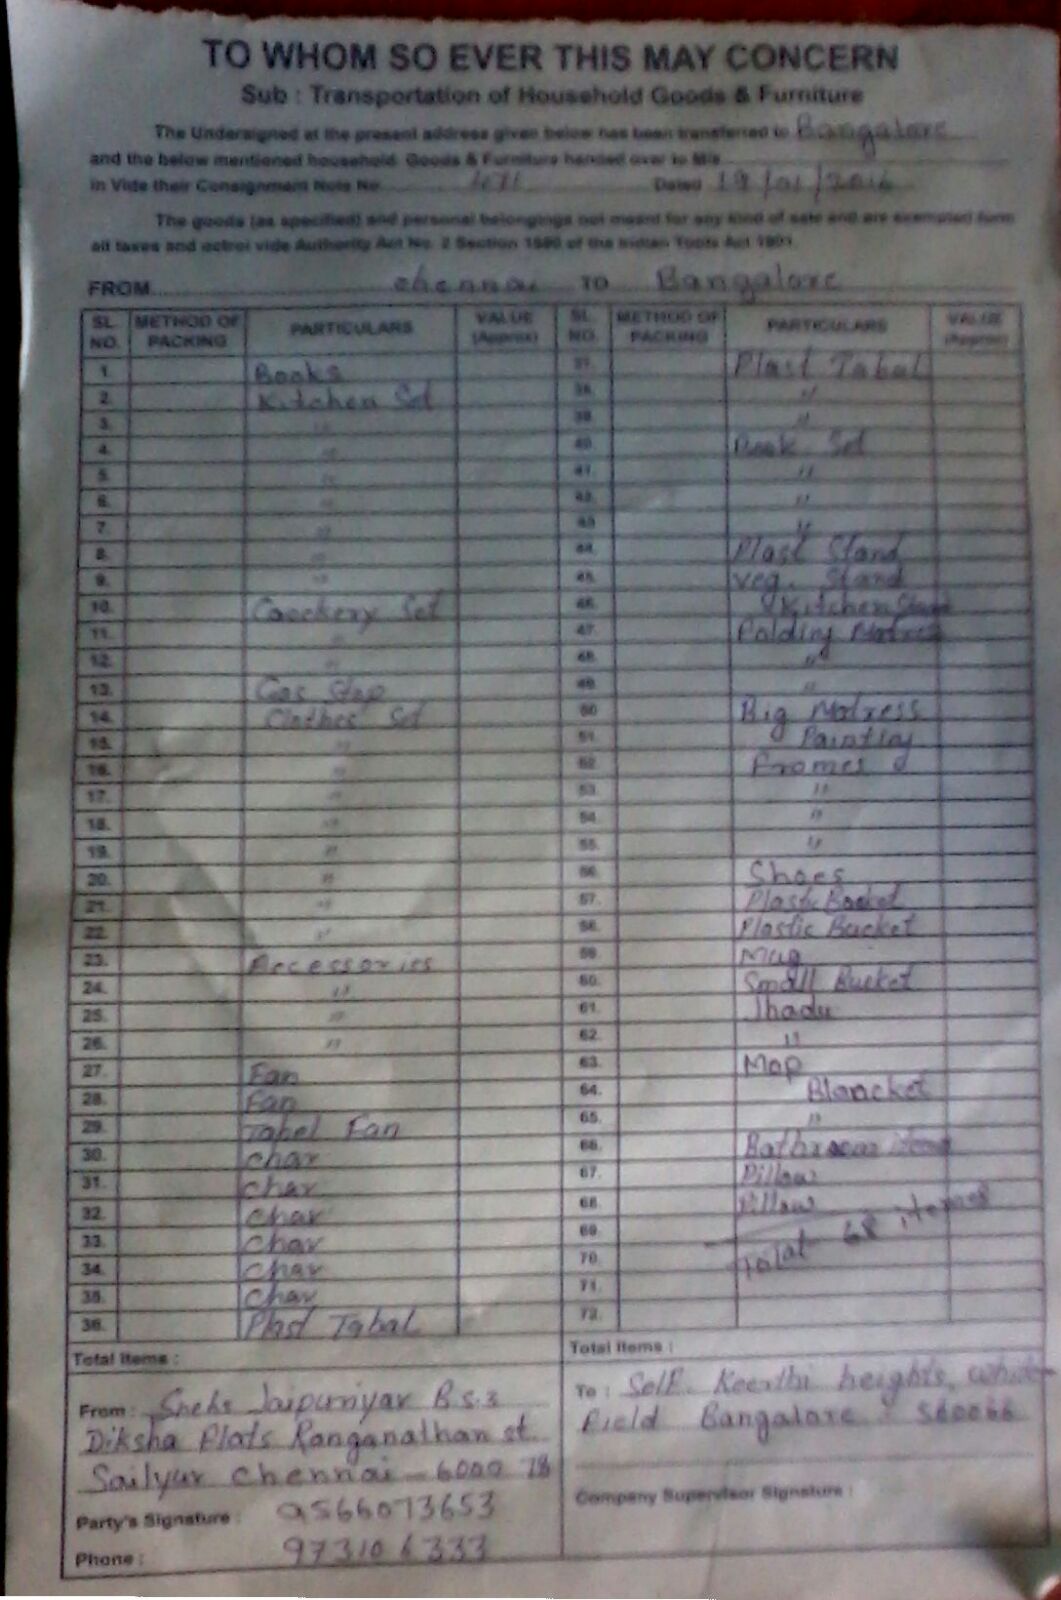 TO WHOM SO EVER THIS MAY CONCERN
Sub : Transportation of Household Goods & Furniture
The Undersigned at the present address given below has been transferred to Bangalore
and the below mentioned household Goods & Furniture handed over to M/s
in Vide their Consignment Note No. Dated 19/01/2016
The goods (as specified) and personal belongings not meant for any kind of sale and are exempted form
all taxes and octroi vide Authority Act No. 2 Section of the Indian Act
FROM chennai TO Bangalore
SL. NO. METHOD OF PACKING PARTICULARS VALUE (Approx) SL. NO. METHOD OF PACKING PARTICULARS VALUE (Approx)
1. Books 37. Plast Tabal
2. Kitchen Set 38. "
3. " 39. "
4. " 40. Book Set
5. " 41. "
6. " 42. "
7. " 43. "
8. " 44. Plast Stand
9. " 45. veg. Stand
10. Coockery Set 46. Kitchen Stand
11. " 47. Folding Matress
12. " 48. "
13. Gas Stop 49. "
14. Clothes Set 50. Big Matress
15. " 51. Painting
16. " 52. Frames
17. " 53. "
18. " 54. "
19. " 55. "
20. " 56. Shoes
21. " 57. Plastic Bocket
22. " 58. Plastic Bucket
23. Accessories 59. Mug
24. " 60. Small Bucket
25. " 61. Jhadu
26. " 62. "
27. Fan 63. Mop
28. Fan 64. Blancket
29. Tabel Fan 65. "
30. Char 66. Bathroom items
31. Char 67. Pillow
32. Char 68. Pillow
33. Char 69.
34. Char 70. Total 68 items
35. Char 71.
36. Plast Tabal 72.
Total Items : Total Items :
From : Sneha Jaipuriyar B.S.3
Diksha Flats Ranganathan st.
Chennai - 6000 78
Party's Signature : 9566073653
Phone : 973106333
To : Self. Keerthi heights, White
Field Bangalore : 560066
Company Supervisor Signature :